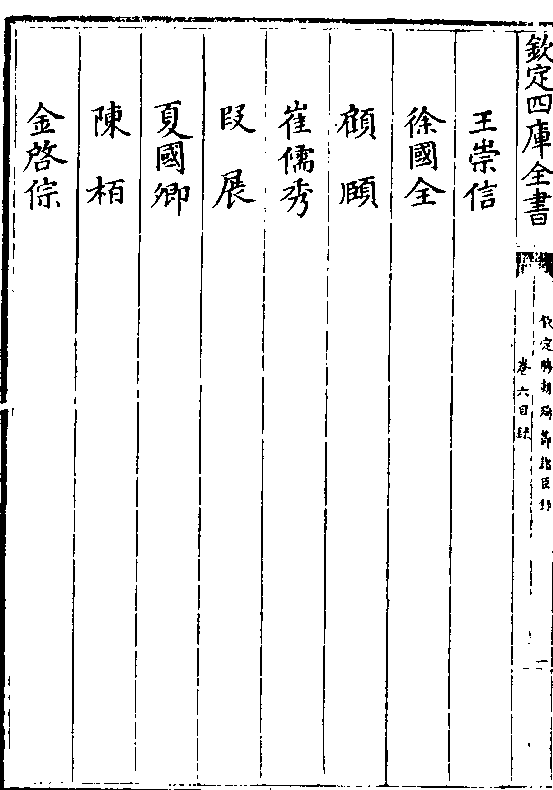 欽定四庫全書
欽定勝朝殉節諸臣錄
卷六目錄
一
王崇信
徐國全
顧頤
崔儒秀
段展
夏國卿
陳栢
金啓倧